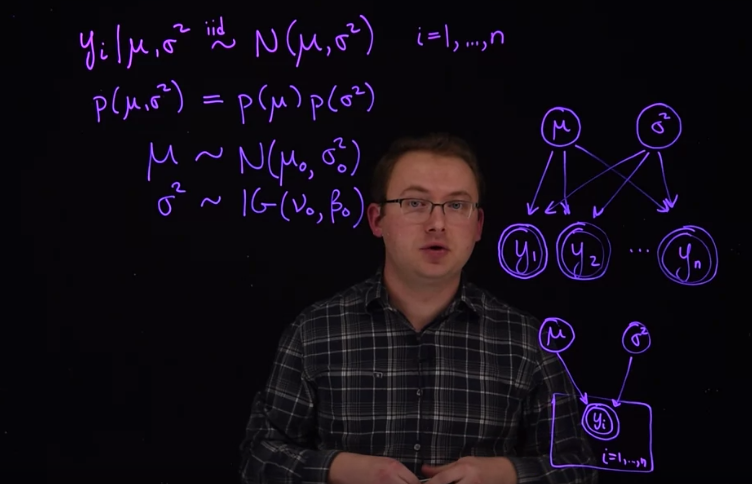 yᵢ|μ,σ² iid ~ N(μ,σ²) i=1,...,n
p(μ,σ²) = p(μ)p(σ²)
μ ~ N(μ₀,σ₀²)
σ² ~ IG(ν₀,β₀)
μ σ²
y₁ y₂ ... yₙ
μ σ²
yᵢ
i=1,...,n